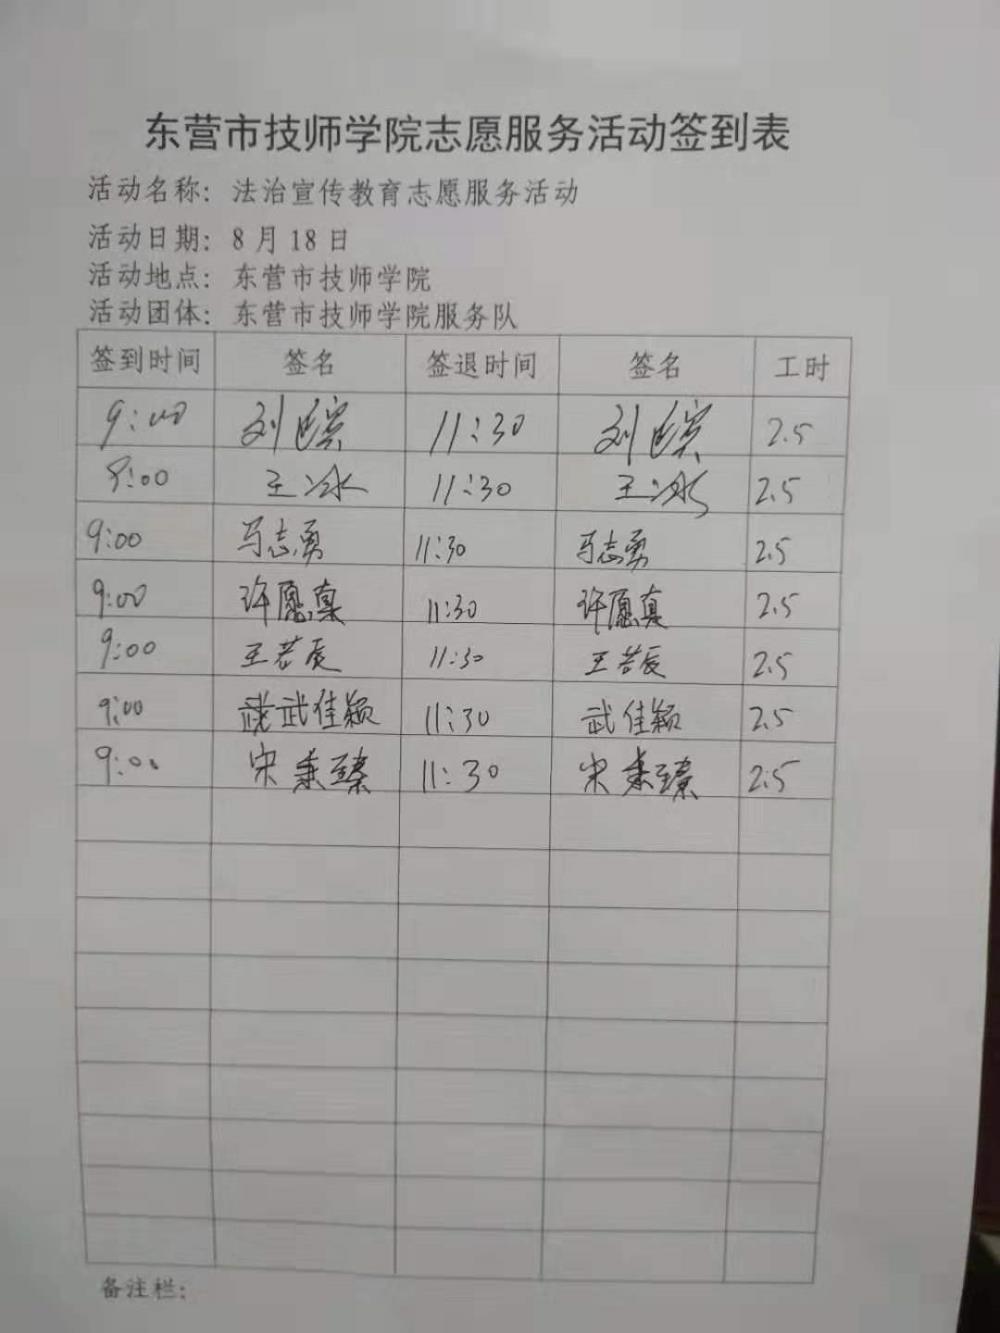 东营市技师学院志愿服务活动签到表
活动名称：法治宣传教育志愿服务活动
活动日期：8 月 18 日
活动地点：东营市技师学院
活动团体：东营市技师学院服务队
签到时间 签名 签退时间 签名 工时
9:00 刘 11:30 刘 2.5
9:00 王冰 11:30 王冰 2.5
9:00 马志勇 11:30 马志勇 2.5
9:00 许愿真 11:30 许愿真 2.5
9:00 王若辰 11:30 王若辰 2.5
9:00 武佳颖 11:30 武佳颖 2.5
9:00 宋秉臻 11:30 宋秉臻 2.5
备注栏：